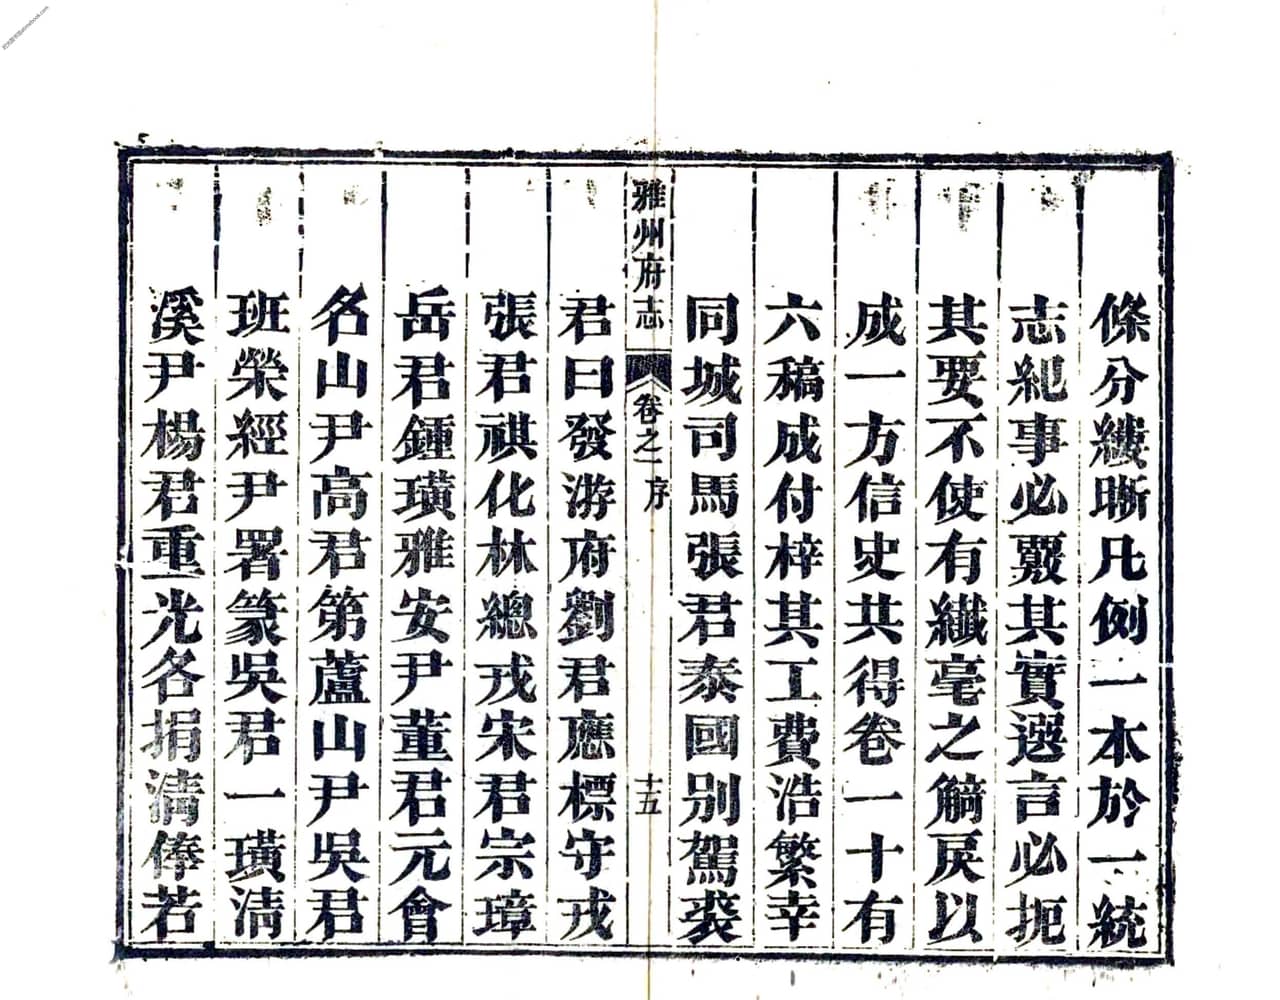 條分縷晰凡例一本於一統
志紀事必覈其實選言必扼
其要不使有纖毫之觭戾以
成一方信史共得卷一十有
六稿成付梓其工費浩繁幸
同城司馬張君泰國別駕裘
雅州府志
卷之一
序
十五
君曰發游府劉君應標守戎
張君祺化林總戎宋君宗璋
岳君鍾璜雅安尹董君元會
名山尹高君第蘆山尹吳君
班榮經尹署篆吳君一璜清
溪尹楊君重光各捐清俸若